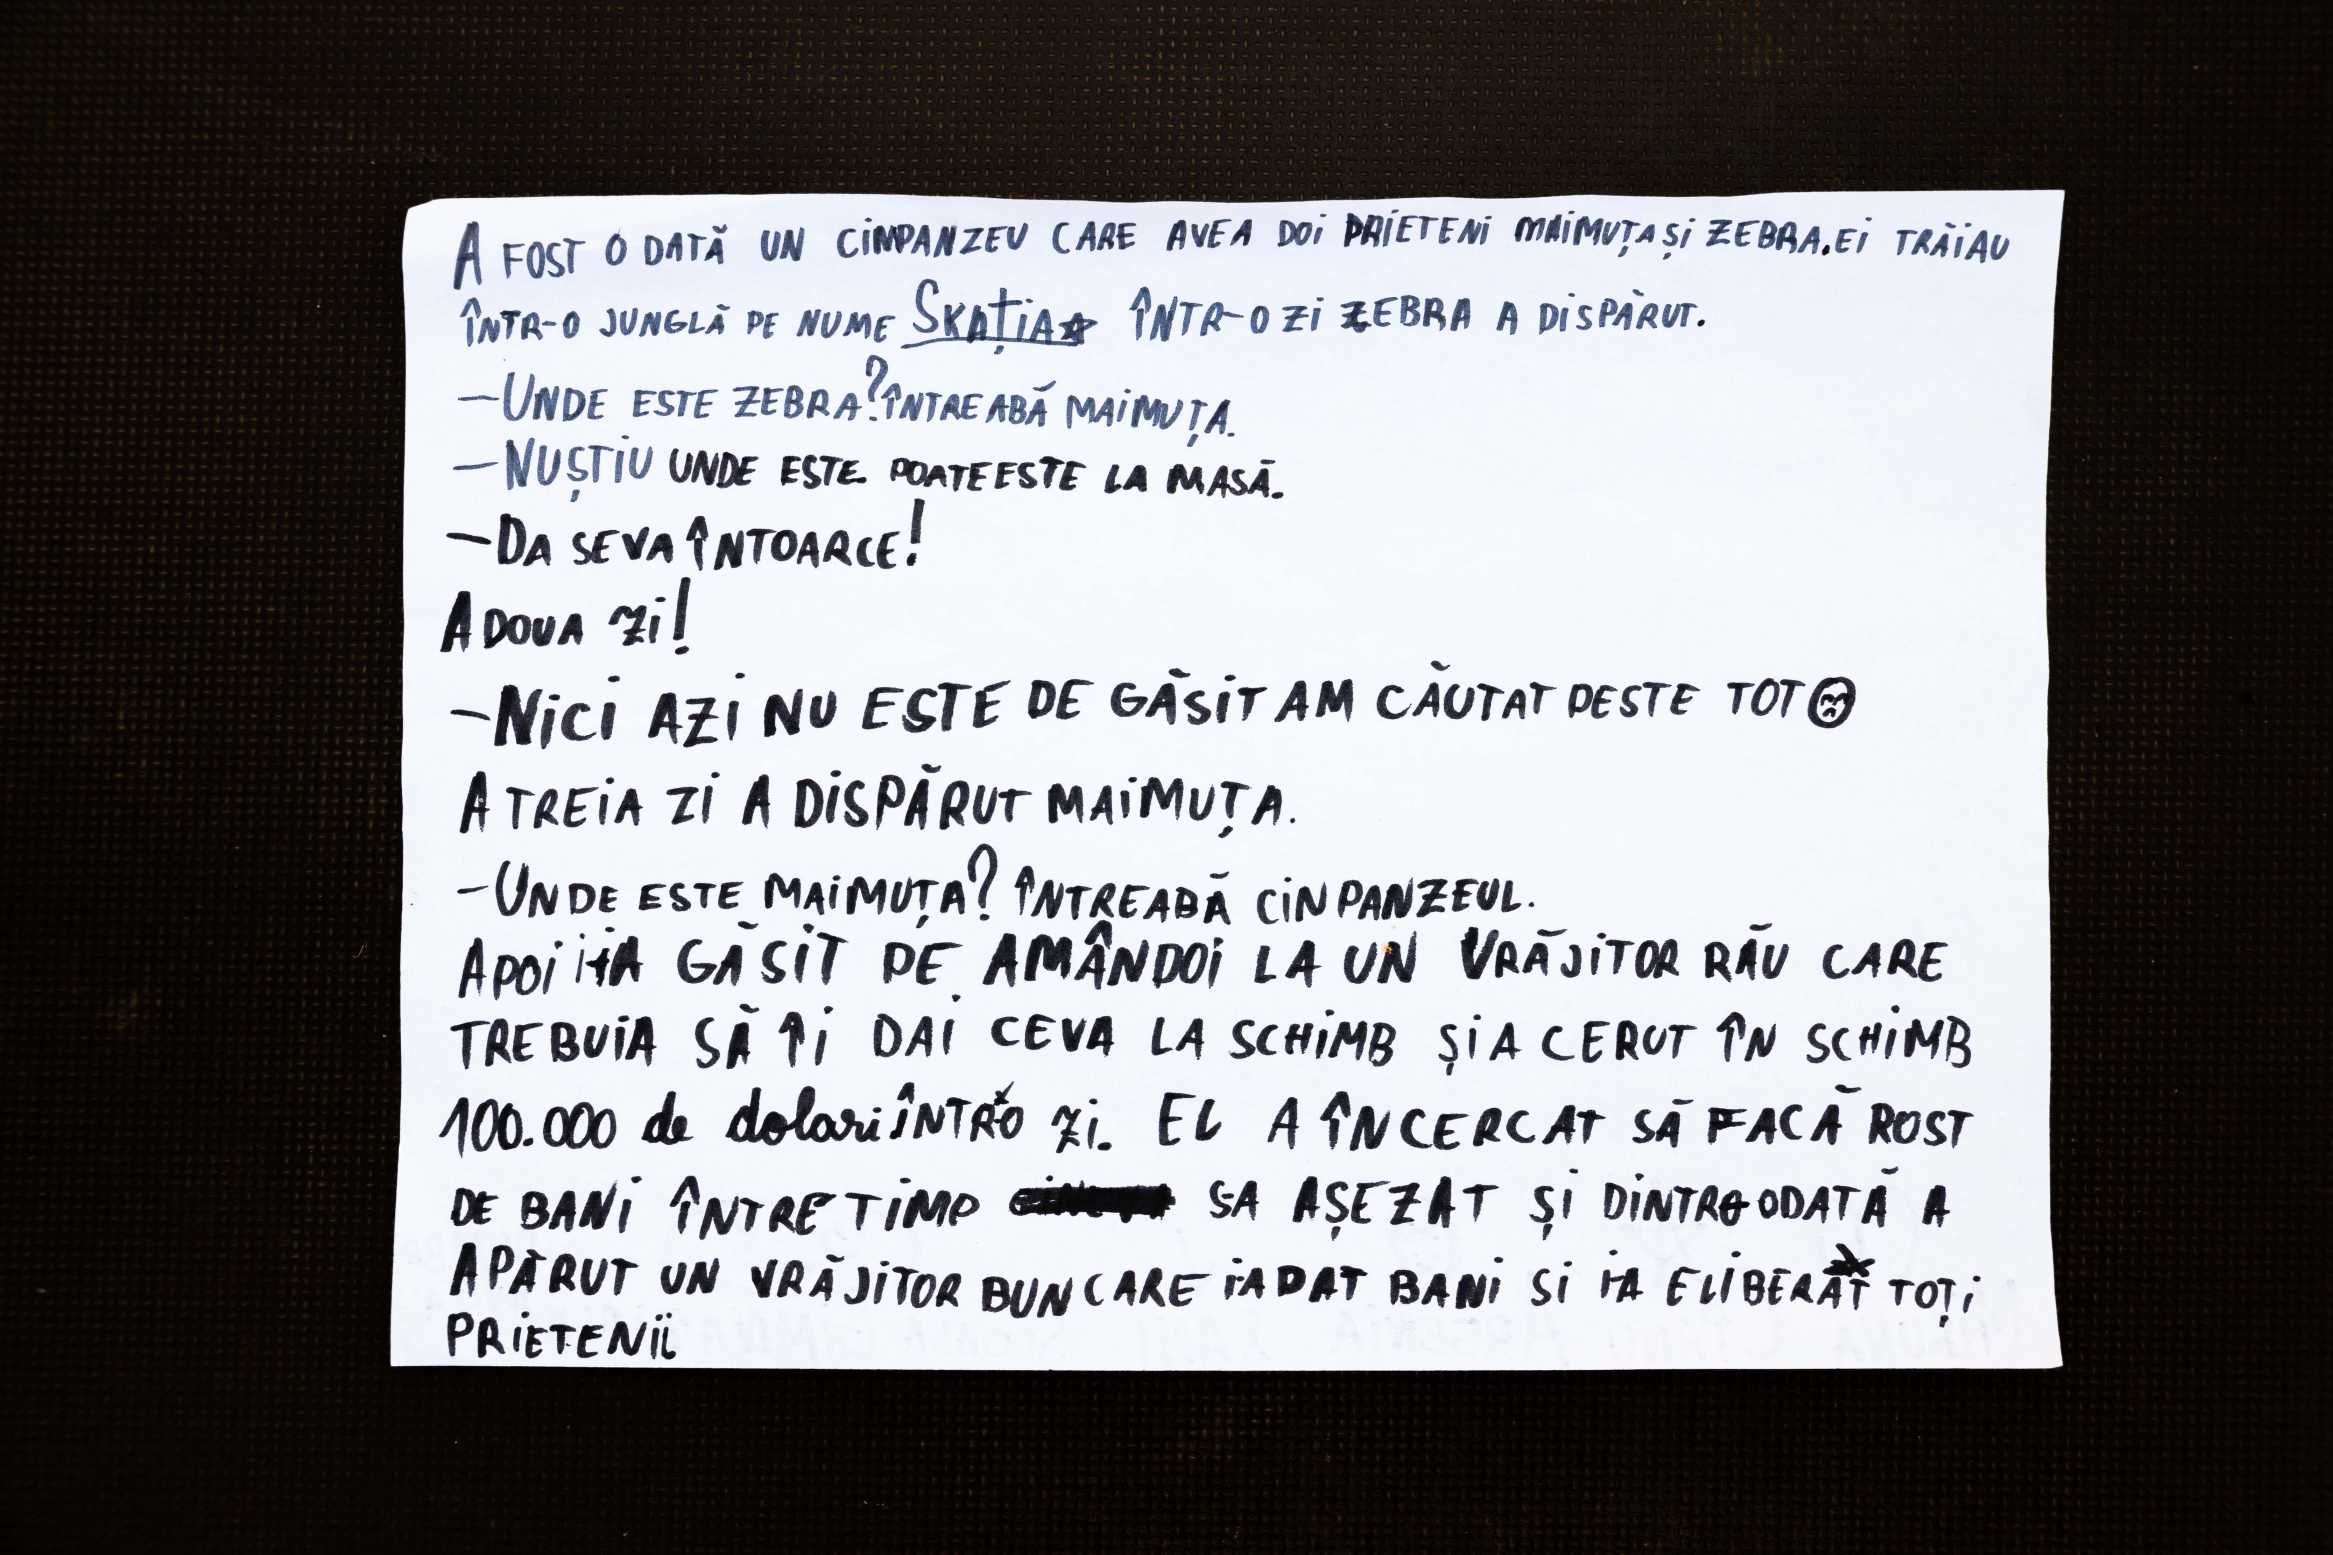 A FOST O DATĂ UN CIMPANZEU CARE AVEA DOI PRIETENI MAIMUȚA ȘI ZEBRA. EI TRĂIAU
ÎNTR-O JUNGLĂ PE NUME SKAȚIA☆ ÎNTR-O ZI ZEBRA A DISPĂRUT.
—UNDE ESTE ZEBRA? ÎNTREABĂ MAIMUȚA.
—NUȘTIU UNDE ESTE. POATEESTE LA MASĂ.
—DA SEVA ÎNTOARCE!
A DOUA ZI!
—NICI AZI NU ESTE DE GĂSIT AM CĂUTAT PESTE TOT☹
A TREIA ZI A DISPĂRUT MAIMUȚA.
—UNDE ESTE MAIMUȚA? ÎNTREABĂ CINPANZEUL.
APOI I-A GĂSIT PE AMÂNDOI LA UN VRĂJITOR RĂU CARE
TREBUIA SĂ ÎI DAI CEVA LA SCHIMB ȘI A CERUT ÎN SCHIMB
100.000 de dolari ÎNTR-O ZI. EL A ÎNCERCAT SĂ FACĂ ROST
DE BANI ÎNTRE TIMP S-A AȘEZAT ȘI DINTRO ODATĂ A
APĂRUT UN VRĂJITOR BUN CARE I-A DAT BANI SI I-A ELIBERAT TOȚI
PRIETENII